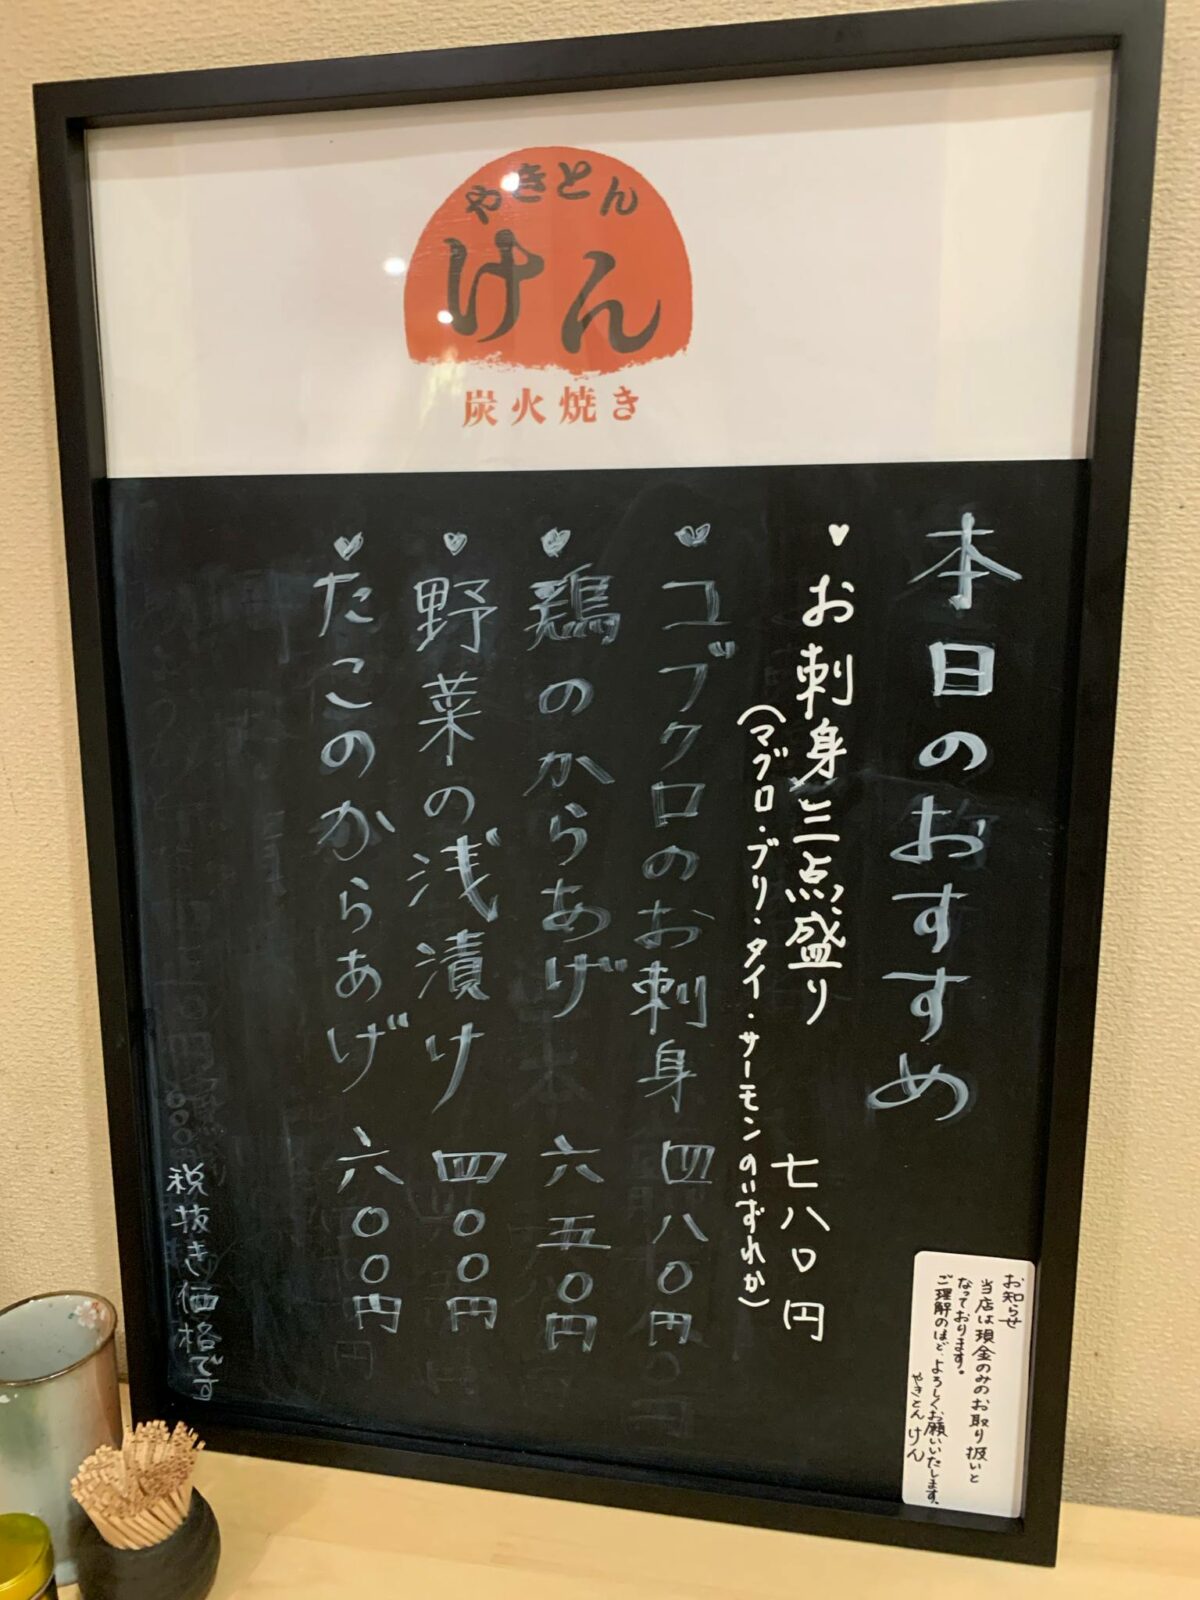 やきとん
けん
炭火焼き
本日のおすすめ
お刺身三点盛り 七八〇円
(マグロ・ブリ・タイ・サーモンのいずれか)
コブクロのお刺身 四八〇円
鶏のからあげ 六五〇円
野菜の浅漬け 四〇〇円
たこのからあげ 六〇〇円
税抜き価格です
お知らせ
当店は現金のみのお取り扱いと
なっております。
ご理解のほど、よろしくお願いいたします。
やきとん けん